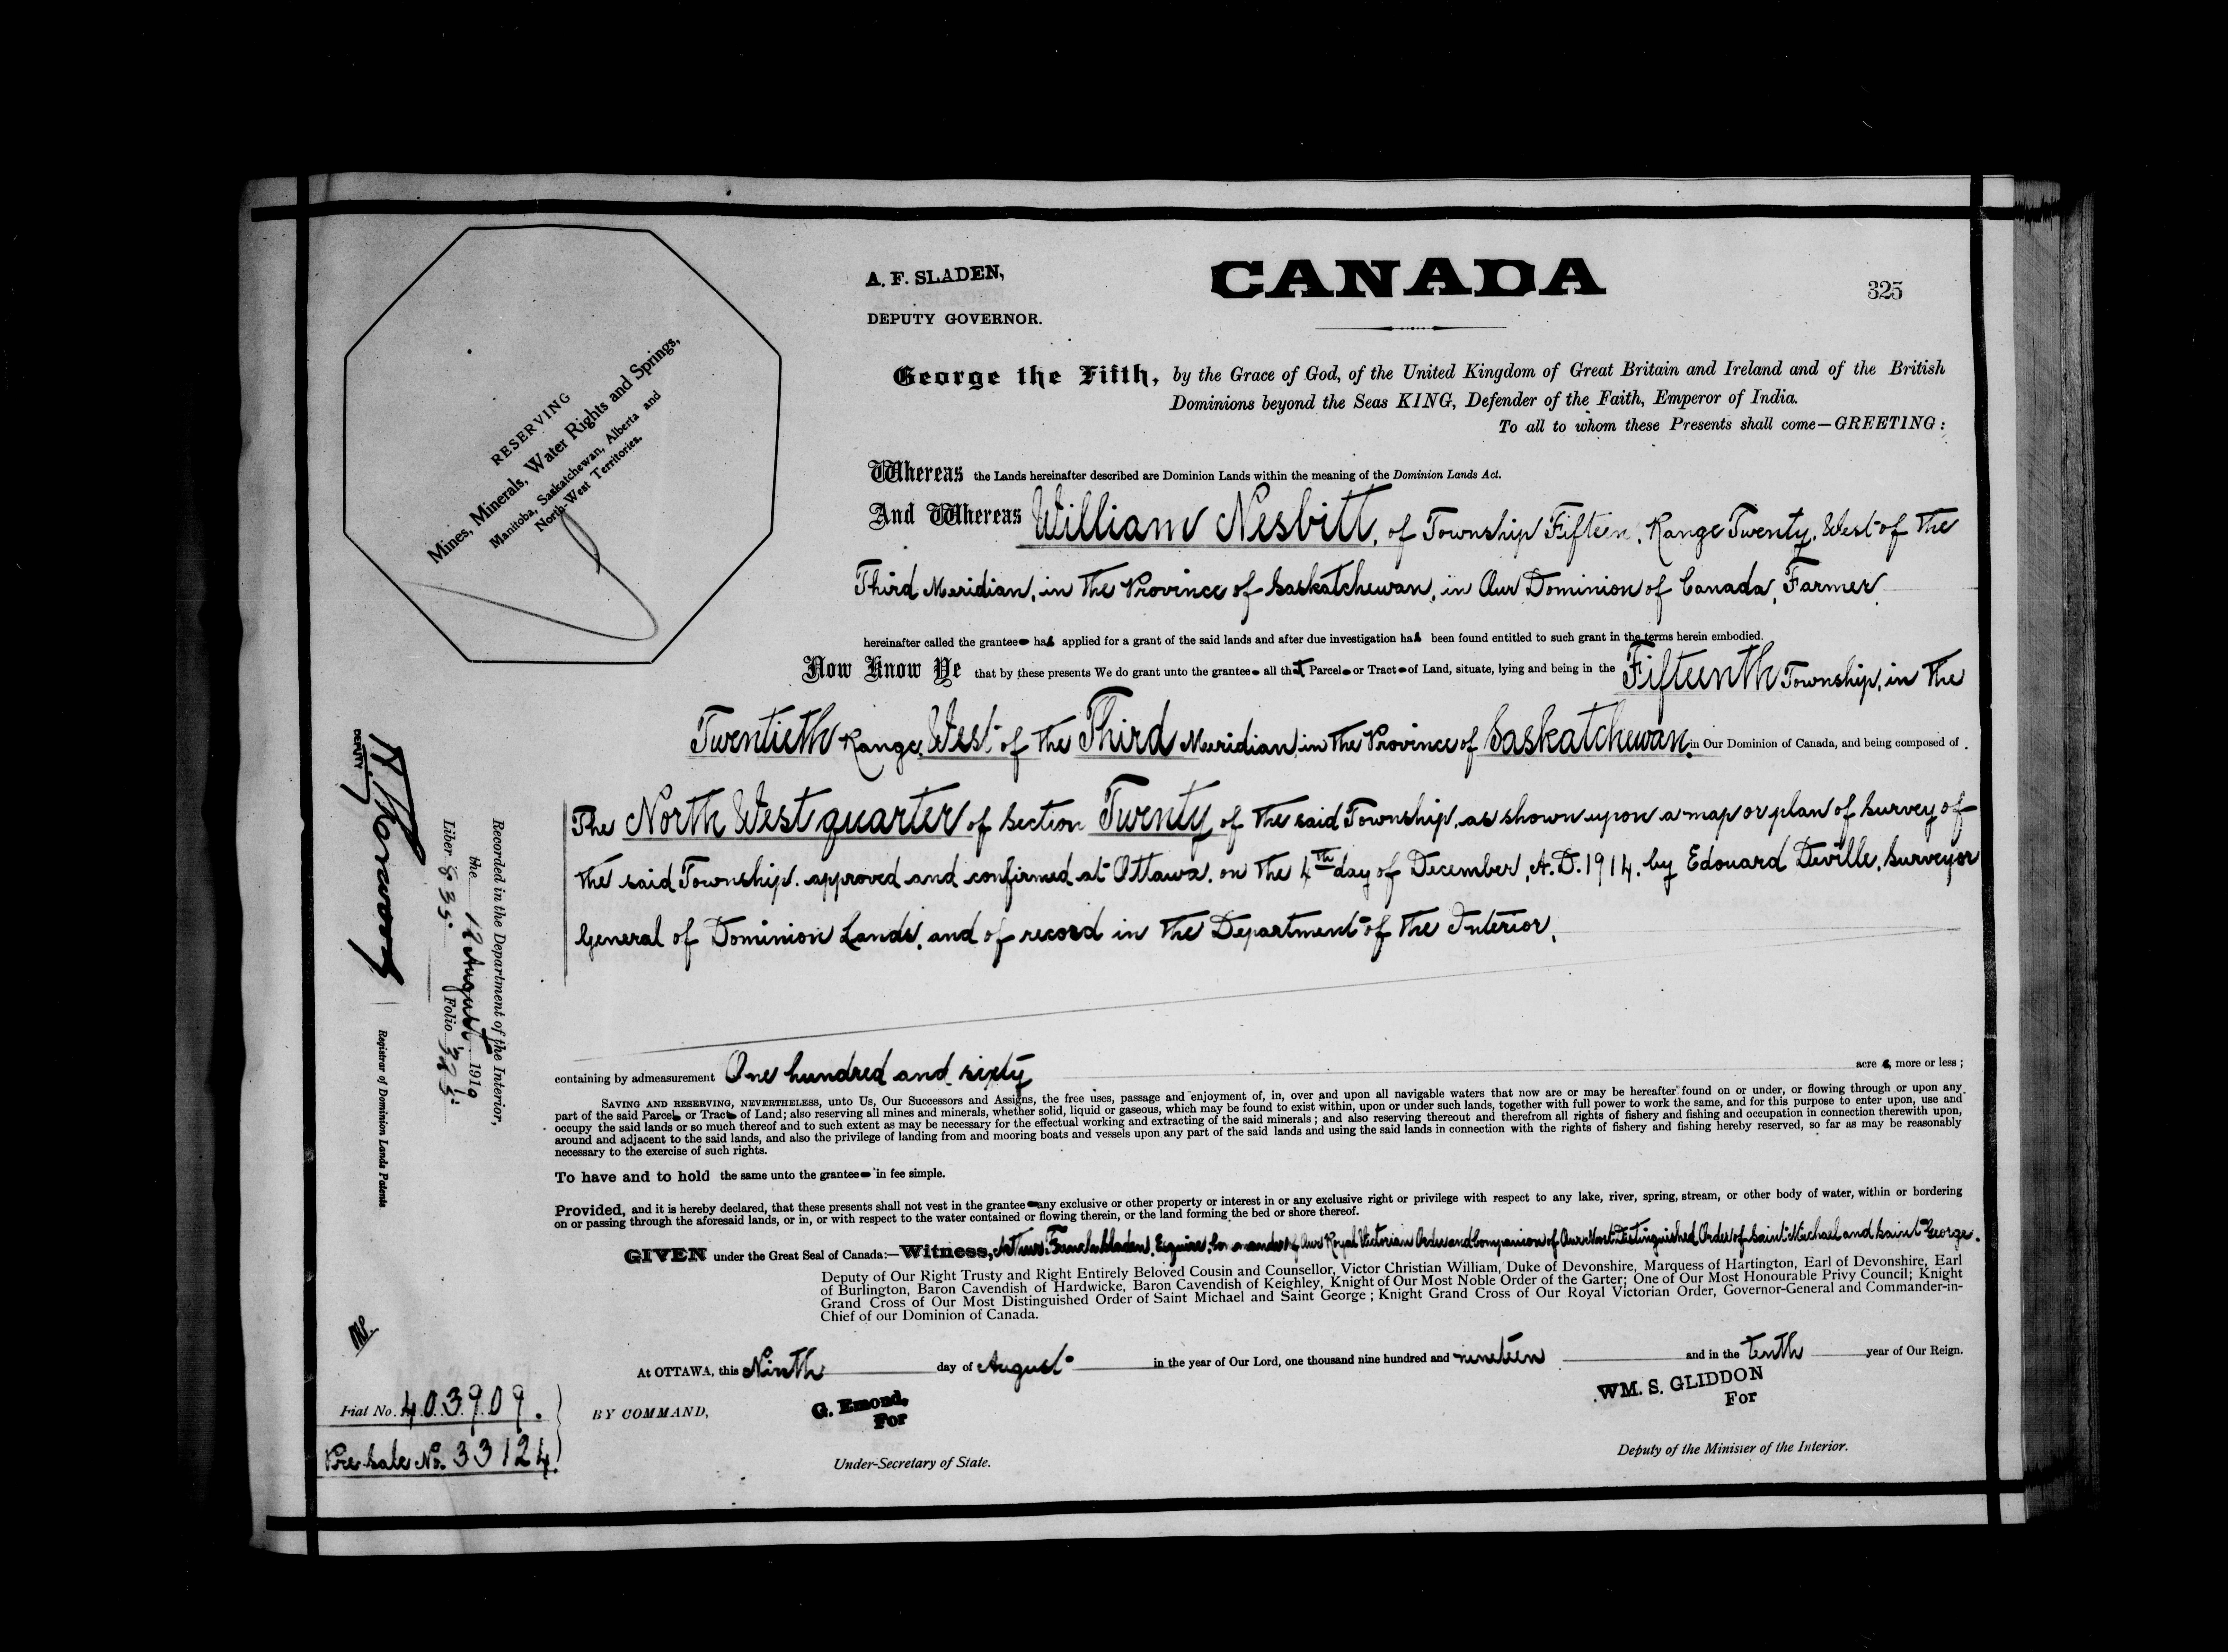 A. F. SLADEN,
DEPUTY GOVERNOR.
CANADA
325
RESERVING
Mines, Minerals, Water Rights and Springs,
Manitoba, Saskatchewan, Alberta and
North-West Territories.
George the Fifth, by the Grace of God, of the United Kingdom of Great Britain and Ireland and of the British
Dominions beyond the Seas KING, Defender of the Faith, Emperor of India.
To all to whom these Presents shall come—GREETING:
Whereas the Lands hereinafter described are Dominion Lands within the meaning of the Dominion Lands Act.
And Whereas William Nesbitt, of Township Fifteen, Range Twenty, West of the
Third Meridian, in the Province of Saskatchewan, in Our Dominion of Canada, Farmer
hereinafter called the grantee has applied for a grant of the said lands and after due investigation has been found entitled to such grant in the terms herein embodied.
Now Know Ye that by these presents We do grant unto the grantee all that Parcel or Tract of Land, situate, lying and being in the Fifteenth Township, in the
Twentieth Range, West of the Third Meridian, in the Province of Saskatchewan, in Our Dominion of Canada, and being composed of
The North West quarter of Section Twenty of the said Township, as shown upon a map or plan of survey of
the said Township, approved and confirmed at Ottawa, on the 4th day of December, A.D. 1914, by Edouard Deville, Surveyor
General of Dominion Lands, and of record in the Department of the Interior,
containing by admeasurement One hundred and sixty acres, more or less;
SAVING AND RESERVING, NEVERTHELESS, unto Us, Our Successors and Assigns, the free uses, passage and enjoyment of, in, over and upon all navigable waters that now are or may be hereafter found on or under, or flowing through or upon any
part of the said Parcel or Tract of Land; also reserving all mines and minerals, whether solid, liquid or gaseous, which may be found to exist within, upon or under such lands, together with full power to work the same, and for this purpose to enter upon, use and
occupy the said lands or so much thereof and to such extent as may be necessary for the effectual working and extracting of the said minerals; and also reserving thereout and therefrom all rights of fishery and fishing and occupation in connection therewith upon,
around and adjacent to the said lands, and also the privilege of landing from and mooring boats and vessels upon any part of the said lands and using the said lands in connection with the rights of fishery and fishing hereby reserved, so far as may be reasonably
necessary to the exercise of such rights.
To have and to hold the same unto the grantee in fee simple.
Provided, and it is hereby declared, that these presents shall not vest in the grantee any exclusive or other property or interest in or any exclusive right or privilege with respect to any lake, river, spring, stream, or other body of water, within or bordering
on or passing through the aforesaid lands, or in, or with respect to the water contained or flowing therein, or the land forming the bed or shore thereof.
GIVEN under the Great Seal of Canada:—Witness, Arthur French Sladen, Esquire, Commander of Our Royal Victorian Order and Companion of Our Most Distinguished Order of Saint Michael and Saint George.
Deputy of Our Right Trusty and Right Entirely Beloved Cousin and Counsellor, Victor Christian William, Duke of Devonshire, Marquess of Hartington, Earl of Devonshire, Earl
of Burlington, Baron Cavendish of Hardwicke, Baron Cavendish of Keighley, Knight of Our Most Noble Order of the Garter; One of Our Most Honourable Privy Council; Knight
Grand Cross of Our Most Distinguished Order of Saint Michael and Saint George; Knight Grand Cross of Our Royal Victorian Order, Governor-General and Commander-in-
Chief of our Dominion of Canada.
At OTTAWA, this Ninth day of August in the year of Our Lord, one thousand nine hundred and nineteen and in the tenth year of Our Reign.
BY COMMAND,
G. Emond,
For
Under-Secretary of State.
WM. S. GLIDDON
For
Deputy of the Minister of the Interior.
Recorded in the Department of the Interior,
the 12 August 1919
Liber 835 Folio 325
DEPUTY
Registrar of Dominion Lands Patents
Fiat No. 403909.
Pre-Sale No. 33124.